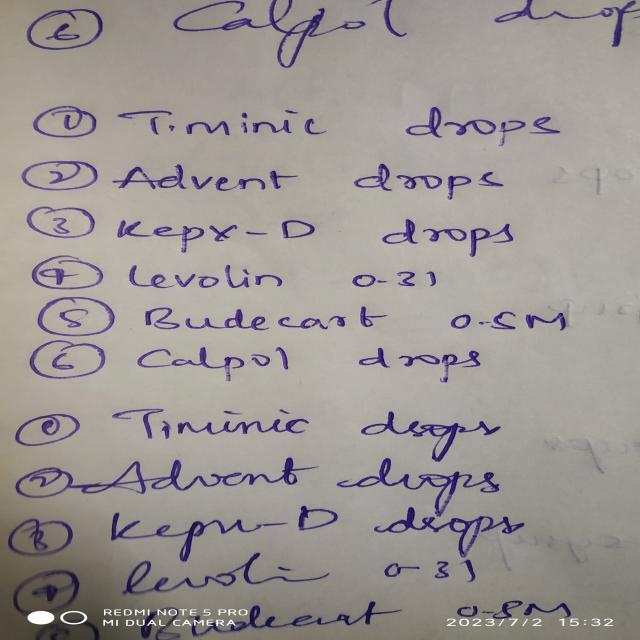 6 Calpol drop
1 Timinic drops
2 Advent drops
3 Kepx-D drops
4 levolin 0-31
5 Budecart 0.5M
6 Calpol drops
1 Timinic drops
2 Advent drops
3 Kepx-D drops
4 levolin 0-31
Budecart 0.5M
REDMI NOTE 5 PRO
MI DUAL CAMERA
2023/7/2 15:32